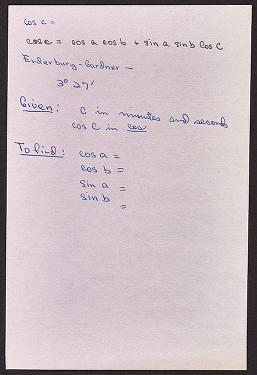 cos c =
cos c = cos a cos b + sin a sin b cos C
Enderbury - Gardner —
3° 27'
Given: C in minutes and seconds
cos C in cos
To find: cos a =
cos b =
sin a =
sin b
=